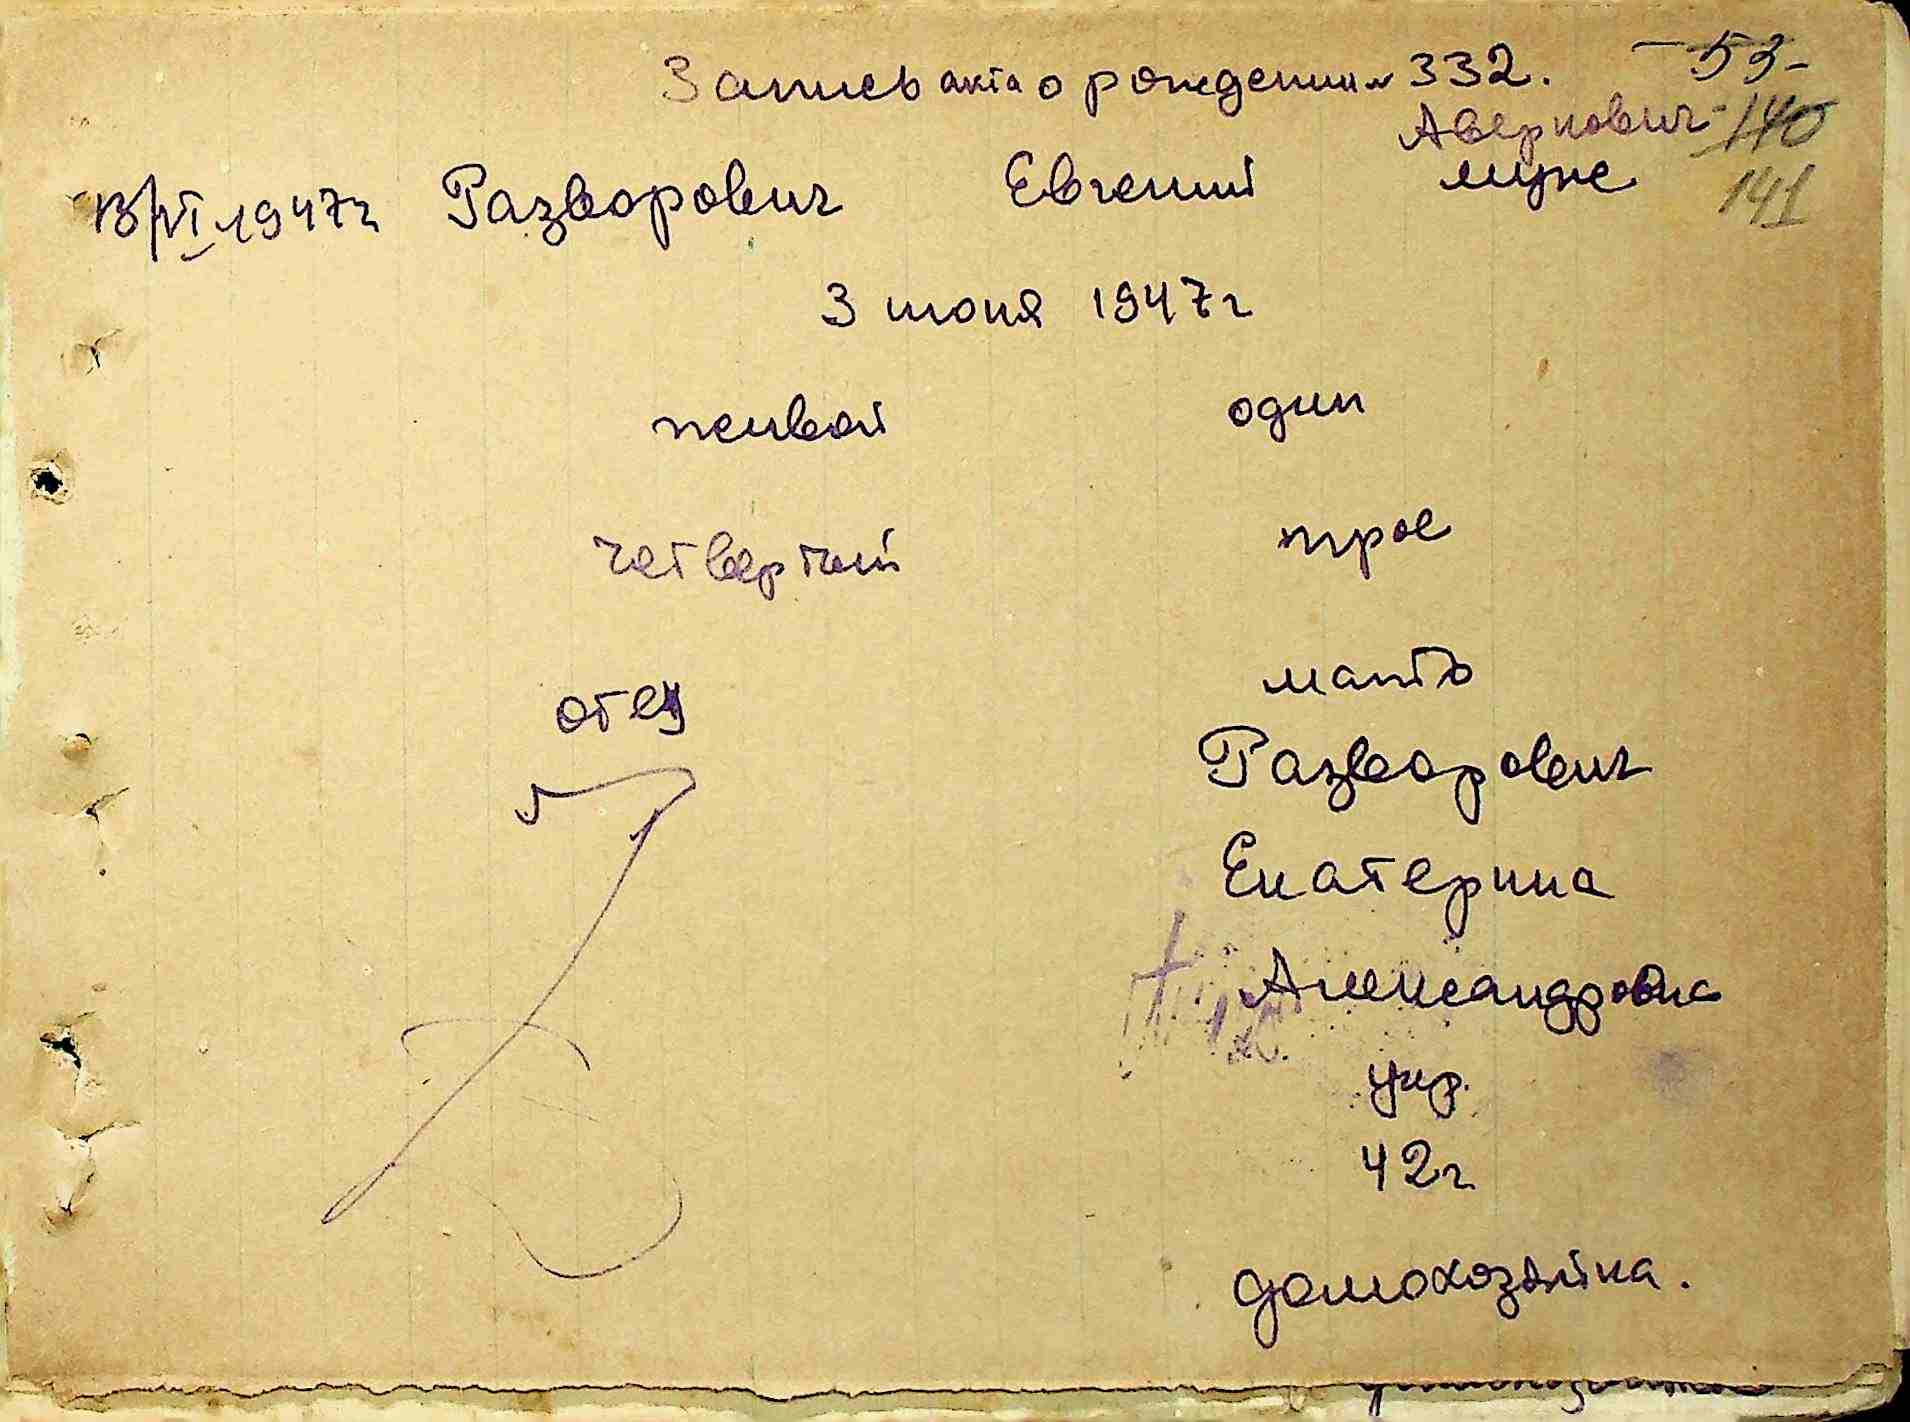 Запись акта о рождении № 332. — 53 -
Аверкович 140
13/VI 1947г Разворович Евгений муж 141
3 июня 1947г
живой один
четвертый трое
отец мать
Разворович
Екатерина
Александровна
укр.
42г
домохозяйка.